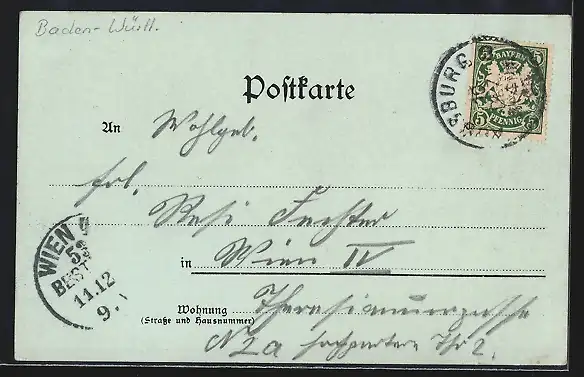 Baden-Württ.
Postkarte
BAYERN
5 5
5 5
PFENNIG
BURG
An Wohlgeb.
Frl. Resi Fechter
in Wien IV
Wohnung Theresianumgasse
(Straße und Hausnummer)
N 2a Thr 2.
WIEN
BEST
11.12
9.